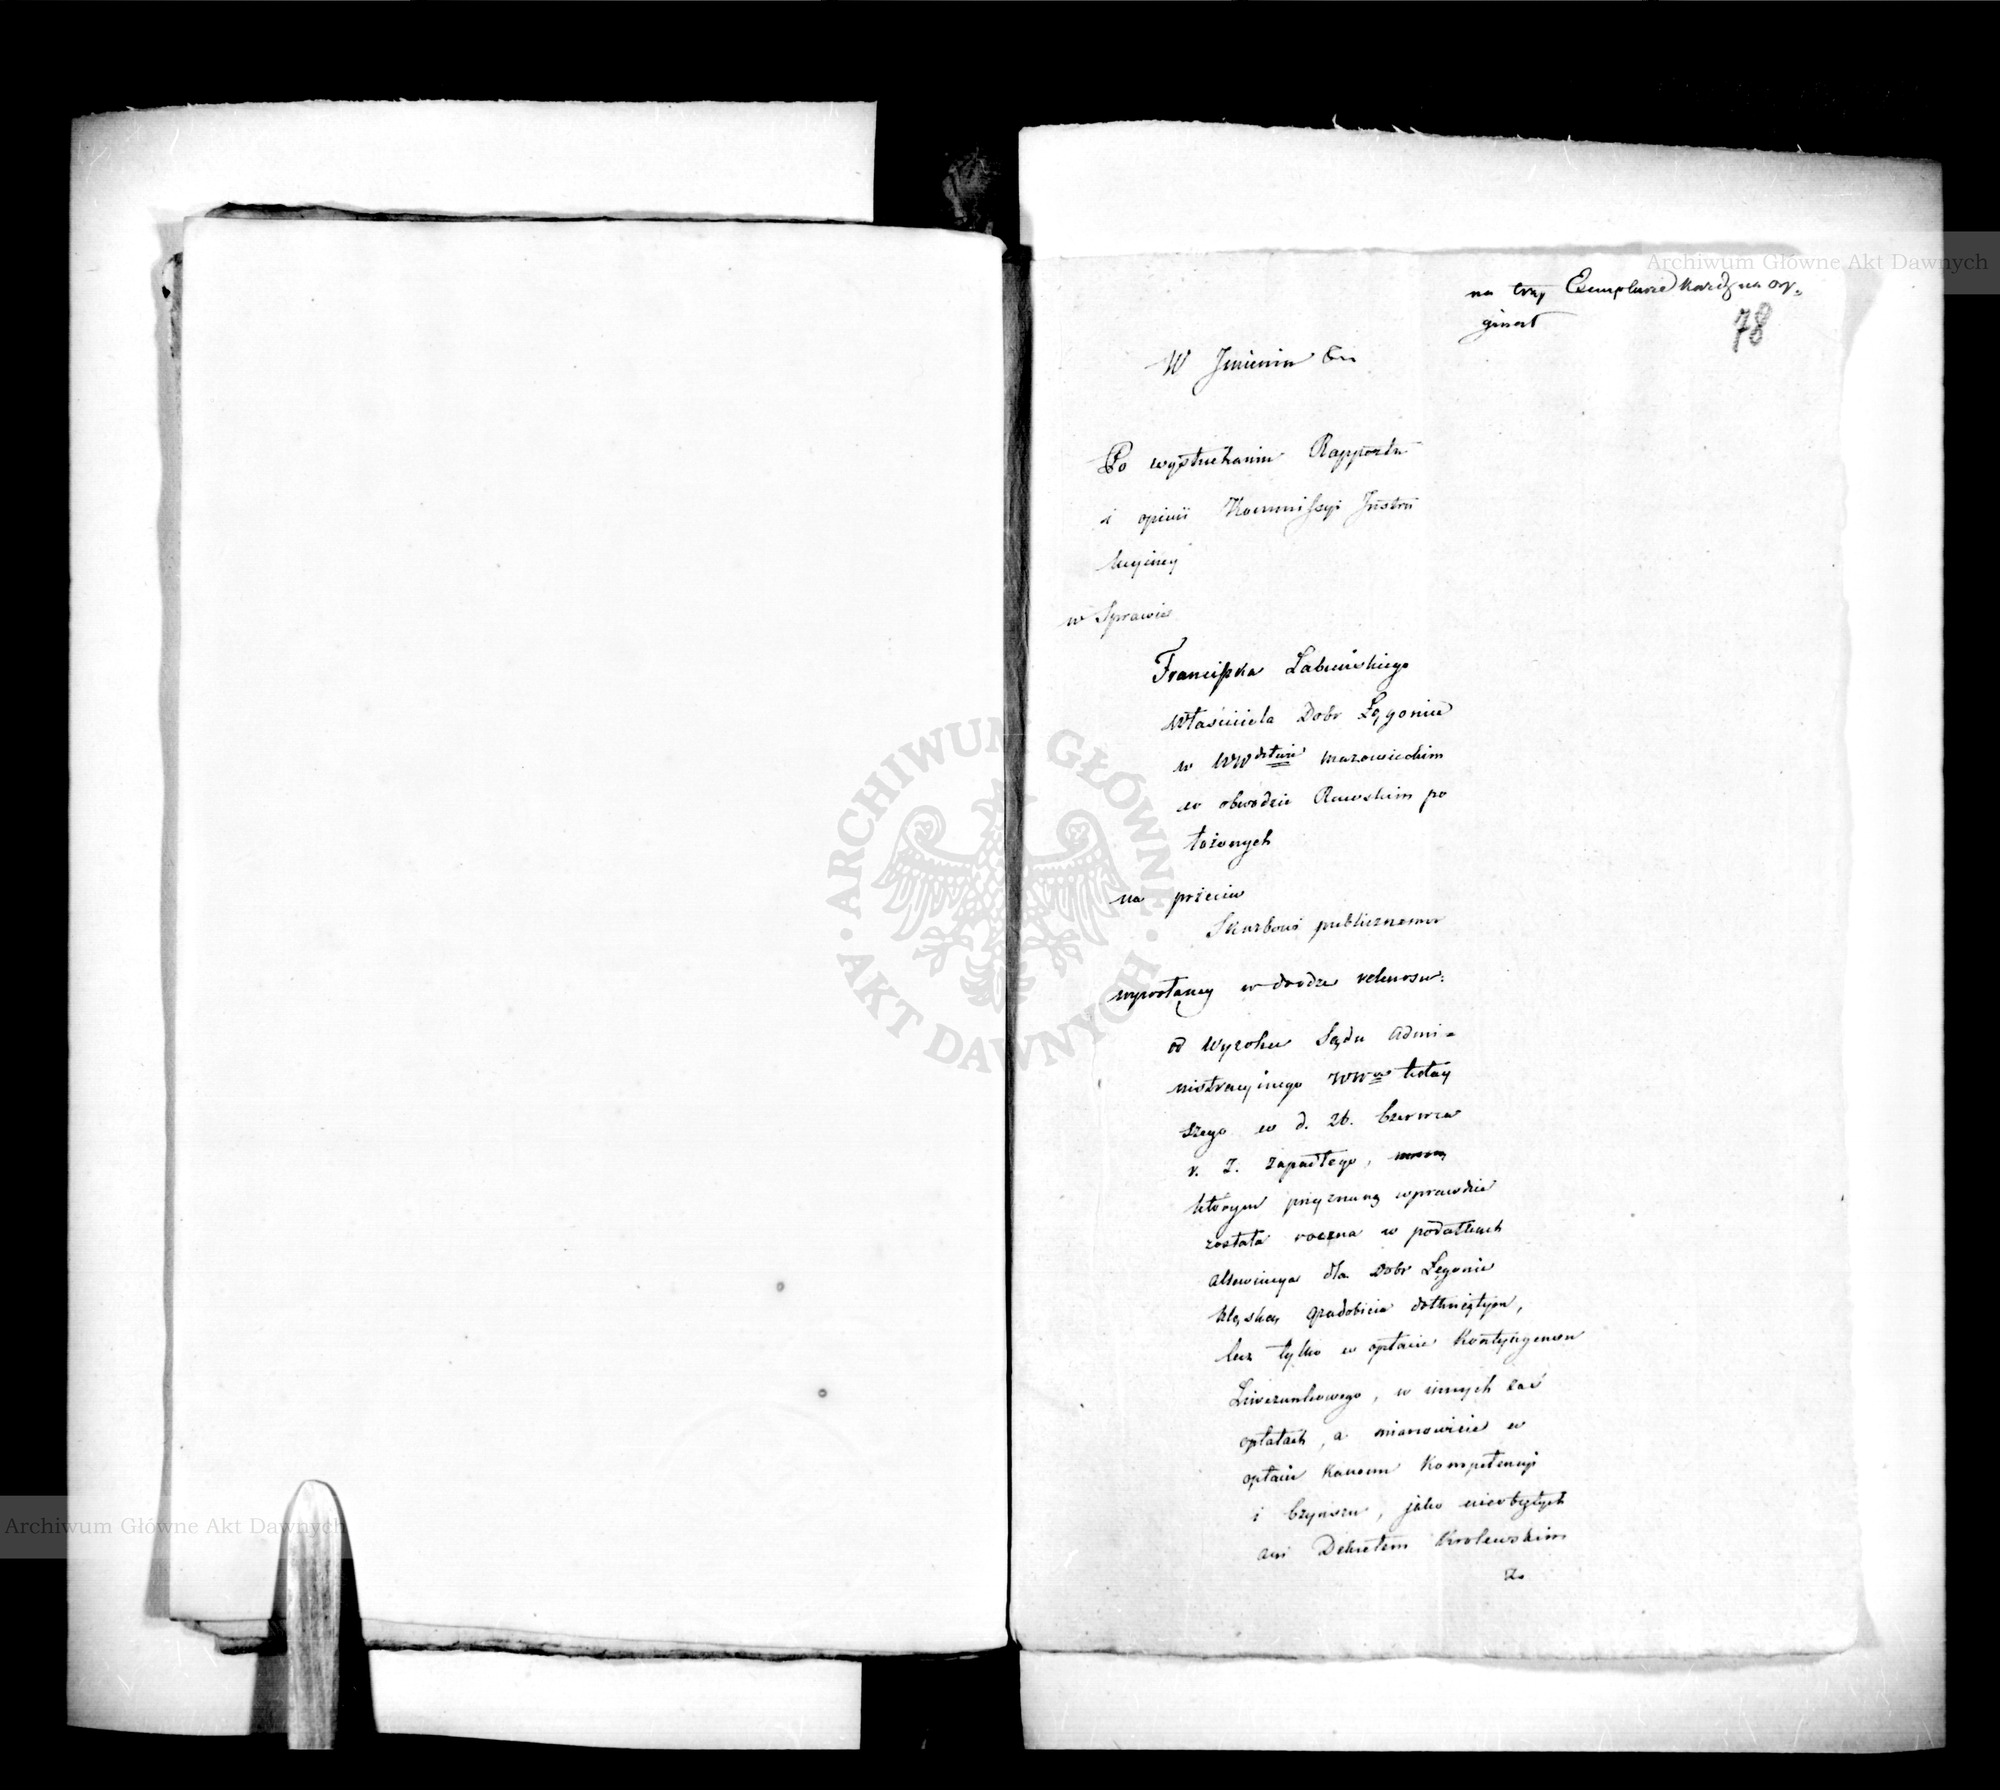 Archiwum Główne Akt Dawnych
na trzy Exemplarze każdy na ory=
ginał
78
W Jmieniu &c
Po wysłuchaniu Rapportu
i opinii Kommissyi Jnstru
kcyiney
w Sprawie
Franciszka Łabuńskiego
Właściciela Dobr Łęgonic
w WWdztwie mazowieckim
w obwodzie Rawskim po
łożonych
na przeciw
Skarbowi publicznemu
wywołaney w drodze rekursu:
od Wyroku Sądu Admi=
nistracyinego WWa tutey
szego w d. 26. Czerwca
r. z. zapadłego,
którym przyznaną wprawdzie
została roczna w podatkach
allewiacya dla Dobr Łęgonic
klęską gradobicia dotkniętym,
lecz tylko w opłacie Kontyngensu
Liwerunkowego, w innych zaś
opłatach, a mianowicie w
opłacie Kanonu Kompetencyi
i Czynszu, jako nieobiętych
ani Dekretem Krolewskim
ARCHIWUM GŁÓWNE AKT DAWNYCH
Archiwum Główne Akt Dawnych